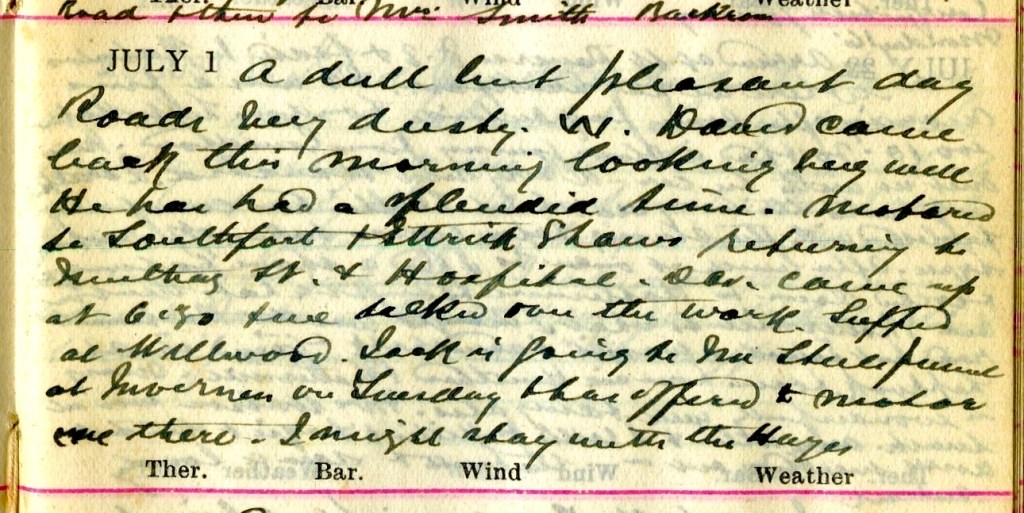 Ther. Bar. Wind Weather
Road & then to Mrs Smith
JULY 1 A dull but pleasant day
Roads very dusty. W. David came
back this morning looking very well
He has had a splendid time. Motored
to Southfort & Ettrick Shaws returning to
St. & Hospital. Dav. came up
at 6.30 & we talked over the work. Supped
at Millwood. Jack is going to Mr funeral
at Inverness on Tuesday & has offered to motor
me there. I might stay with the Hayes
Ther. Bar. Wind Weather